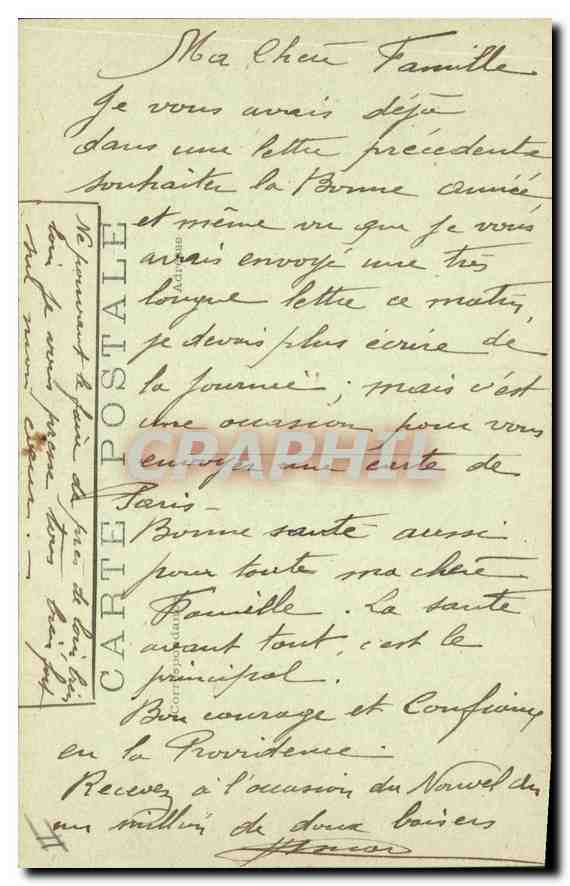 Ma Chère Famille
Je vous avais déjà
dans une lettre précédente
souhaiter la Bonne année
et même vu que je vous
avais envoyé une très
longue lettre ce matin,
je devais plus écrire de
la journée ; mais c'est
une occasion pour vous
envoyer une carte de
Paris -
Bonne santé aussi
pour toute ma chère
Famille. La santé
avant tout, c'est le
principal.
Bon courage et Confiance
en la Providence.
Recevez à l'occasion du Nouvel An
un million de doux baisers
Ne pouvant le faire de près de loin, bien
loin je vous presse tous bien fort
sur mon cœur. -
CARTE POSTALE
Correspondance
Adresse
CPAPHIL
II